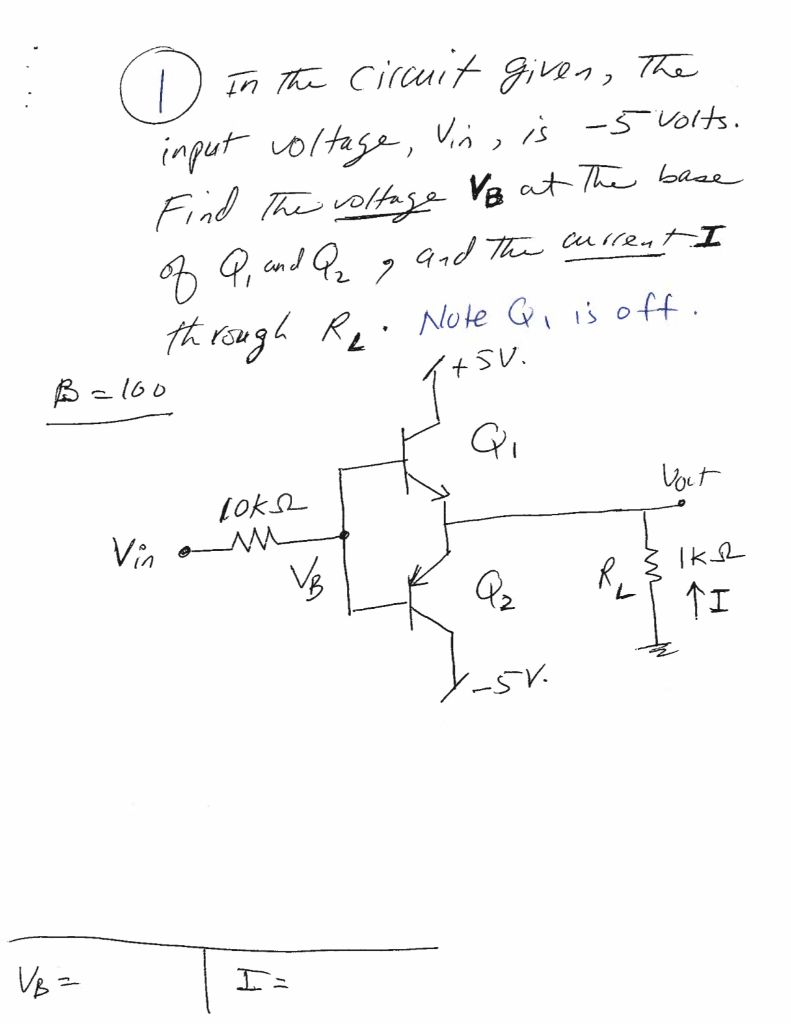 1 In the circuit given, The
input voltage, Vin, is -5 volts.
Find The voltage VB at The base
of Q1 and Q2, and the current I
through RL. Note Q1 is off.
B = 100
+5V.
Q1
Vout
10kΩ
Vin
VB
Q2
RL
1kΩ
↑I
-5V.
VB =
I =